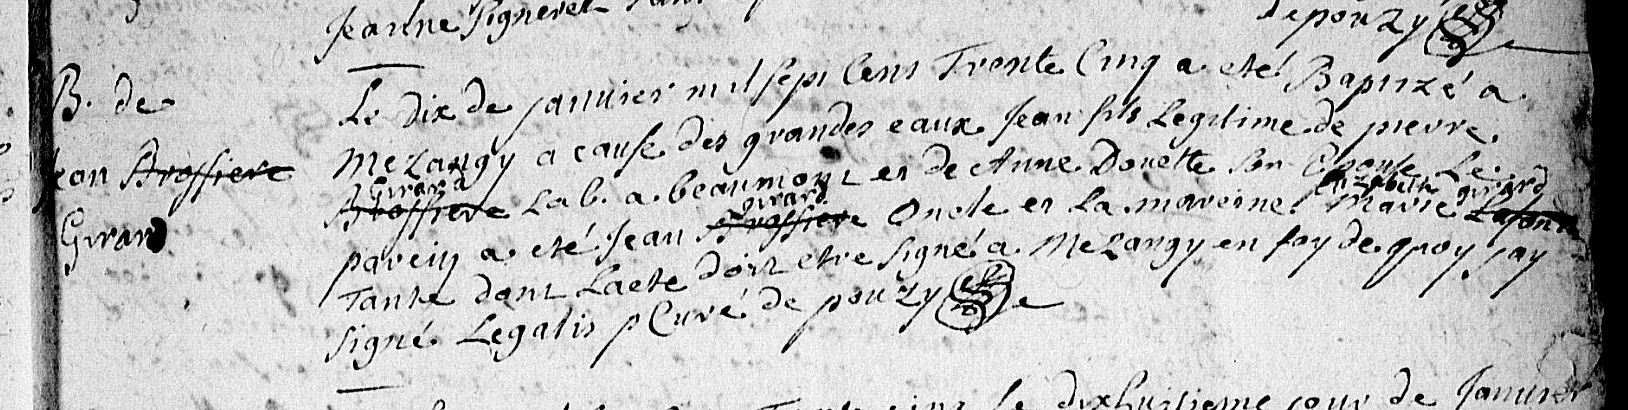 Jeanne Signeret
depouzy
B. de
Jean Brossiere
Girard
Le dix de janvier mil sept Cens Trente Cinq a eté Baptizé a
Mezangy a cause des grandes eaux Jean fils Legitime de pierre
Girard
Brossiere Lab. a beaumont et de Anne Douette son Epouse Le
girard
Elizabeth girard
parein a eté Jean Brossiere Oncle et La mareine Marie Lafont
Tante dont Lacte doit etre signé a Mezangy en foy de quoy jay
signé Legatis p Curé de pouzy
Le dixhuitieme jour de Janvier